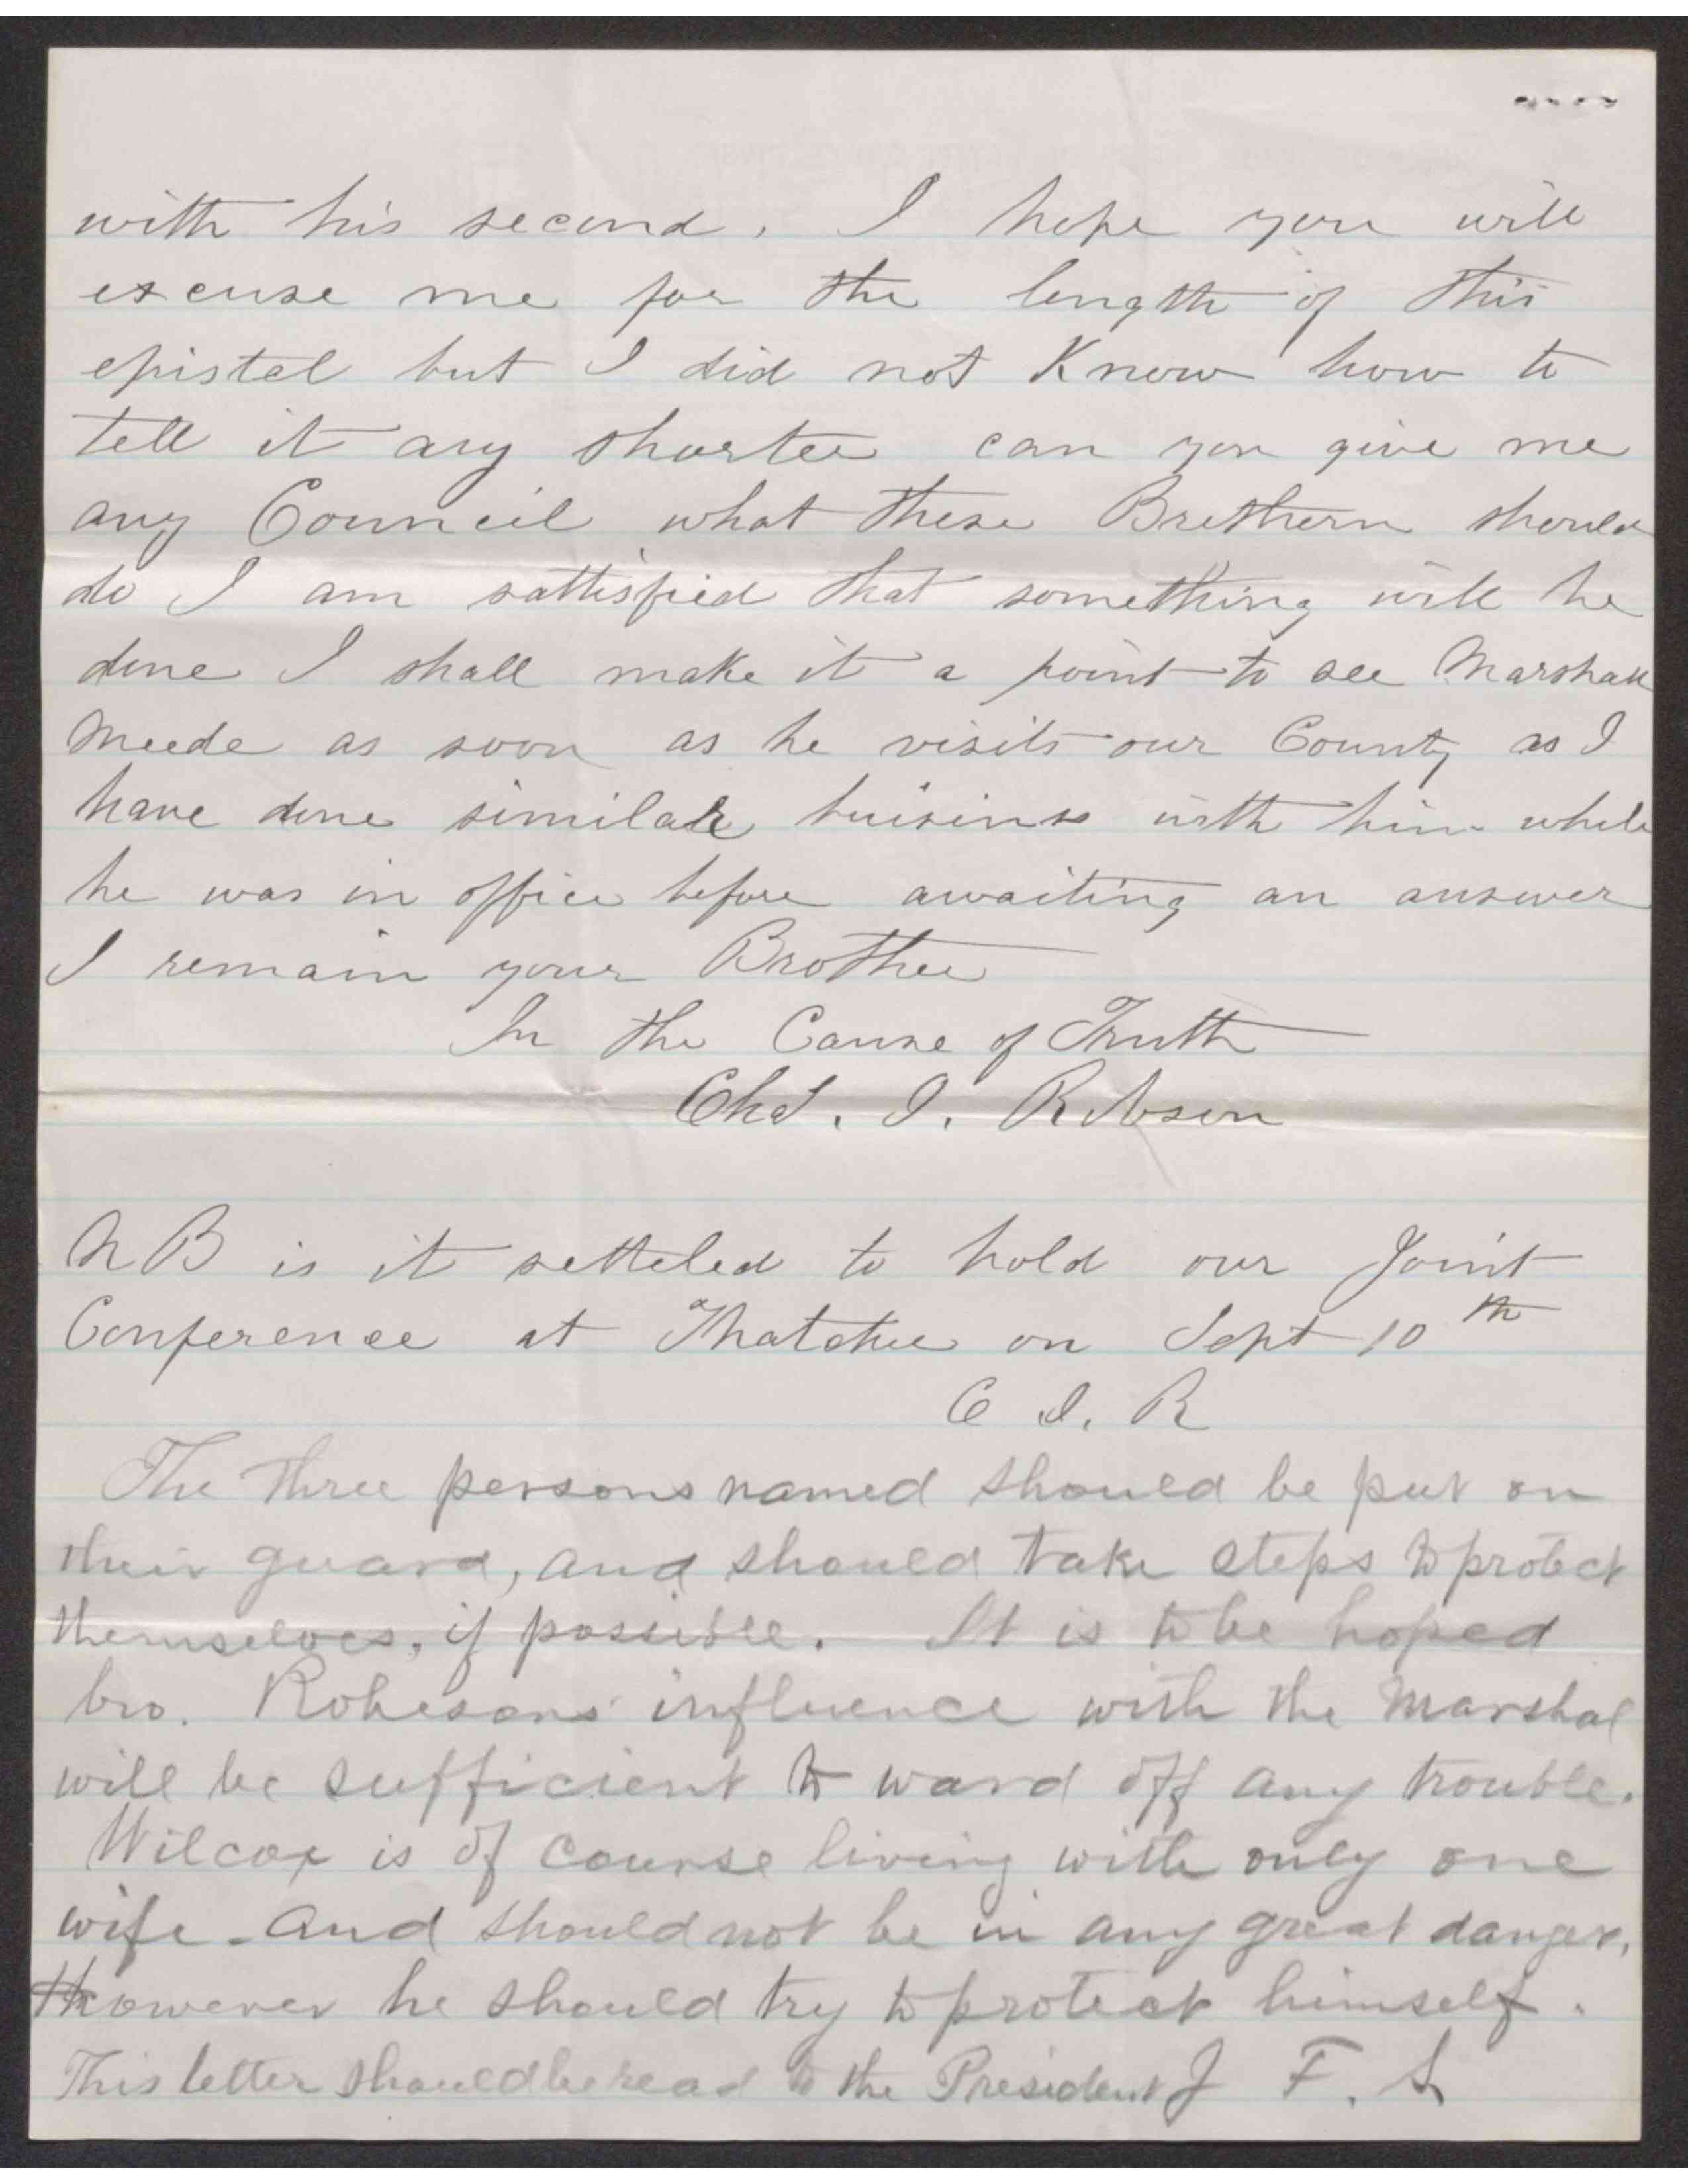 with his second. I hope you will
excuse me for the length of this
epistel but I did not Know how to
tell it any shorter can you give me
any Council what these Brethern should
do I am sattisfied that something will be
done I shall make it a point to see Marshall
Meede as soon as he visits our County as I
have done similar buisiness with him while
he was in office before awaiting an answer
I remain your Brother
In the Cause of Truth
Chas. I. Robson
NB is it setteled to hold our Joint
Conference at Thatcher on Sept 10th
C I. R
The three persons named should be put on
their guard, and should take steps to protect
themselves, if possible. It is to be hoped
bro. Robesons' influence with the Marshal
will be sufficient to ward off any trouble.
Wilcox is of course living with only one
wife - and should not be in any great danger,
However he should try to protect himself.
This letter should be read to the President J F. S